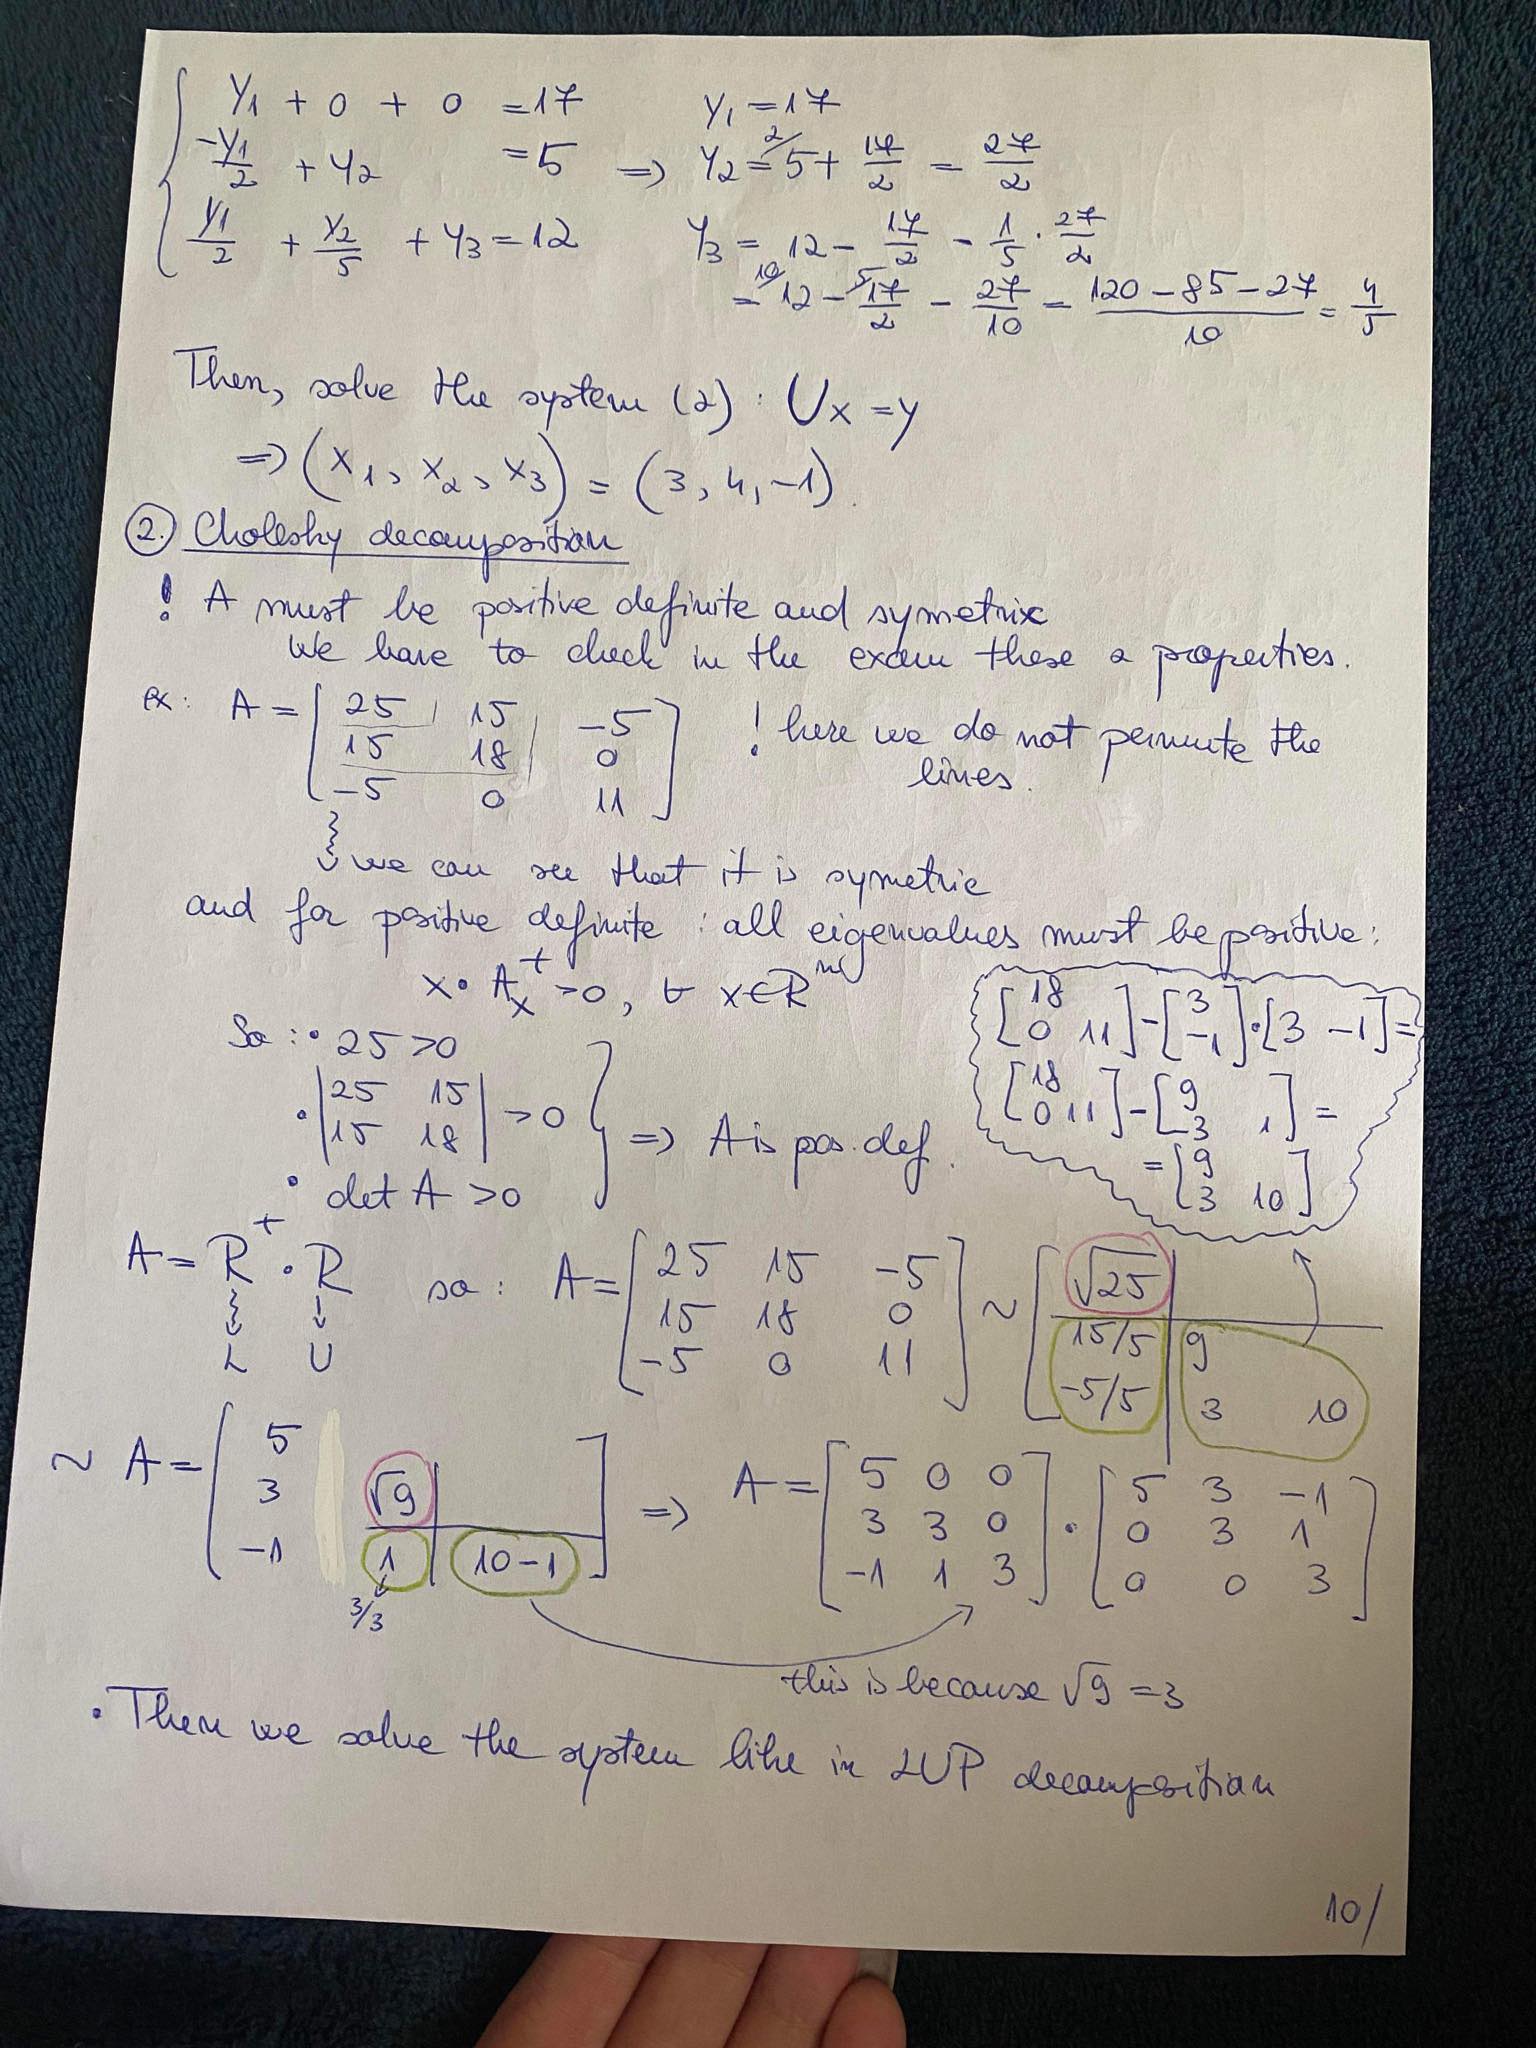 y₁ + 0 + 0 = 17    y₁ = 17
-y₁/2 + y₂ = 5 => y₂ = ²/5 + 17/2 = 27/2
y₁/2 + y₂/5 + y₃ = 12    y₃ = 12 - 17/2 - 1/5 · 27/2
= ¹⁰/12 - ⁵/17/2 - 27/10 = (120 - 85 - 27)/10 = 4/5
Then, solve the system (2) : Ux = y
=> (x₁, x₂, x₃) = (3, 4, -1).
2. Cholesky decomposition
! A must be positive definite and symetrix
We have to check in the exam these 2 properties.
ex: A = [25 15 -5
15 18 0
-5 0 11]    ! here we do not permute the
lines.
we can see that it is symetric
and for positive definite : all eigenvalues must be positive:
x · Aₓᵗ > 0, ∀ x ∈ ℝⁿ
So : · 25 > 0
· |25 15
15 18| > 0
· det A > 0    } => A is pos. def.
[18
0 11] - [3
-1] · [3 -1] =
[18
0 11] - [9
3 1] =
= [9
3 10]
A = Rᵗ · R
L    U
so : A = [25 15 -5
15 18 0
-5 0 11] ~ [√25
15/5 9
-5/5 3 10
~ A = [5
3 √9
-1 1 10-1]
3/3
=> A = [5 0 0
3 3 0
-1 1 3] · [5 3 -1
0 3 1
0 0 3]
this is because √9 = 3
· Then we solve the system like in LUP decomposition
10/